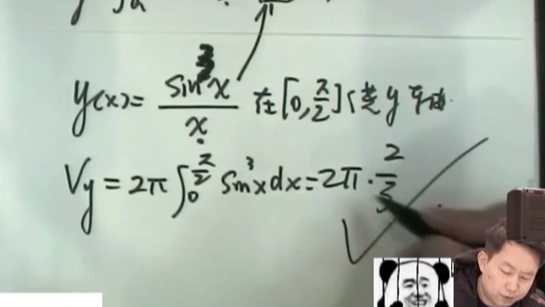 y(x) = sin³x / x 在[0, π/2]绕y
V_y = 2π ∫₀^{π/2} sin³x dx = 2π · 2/3